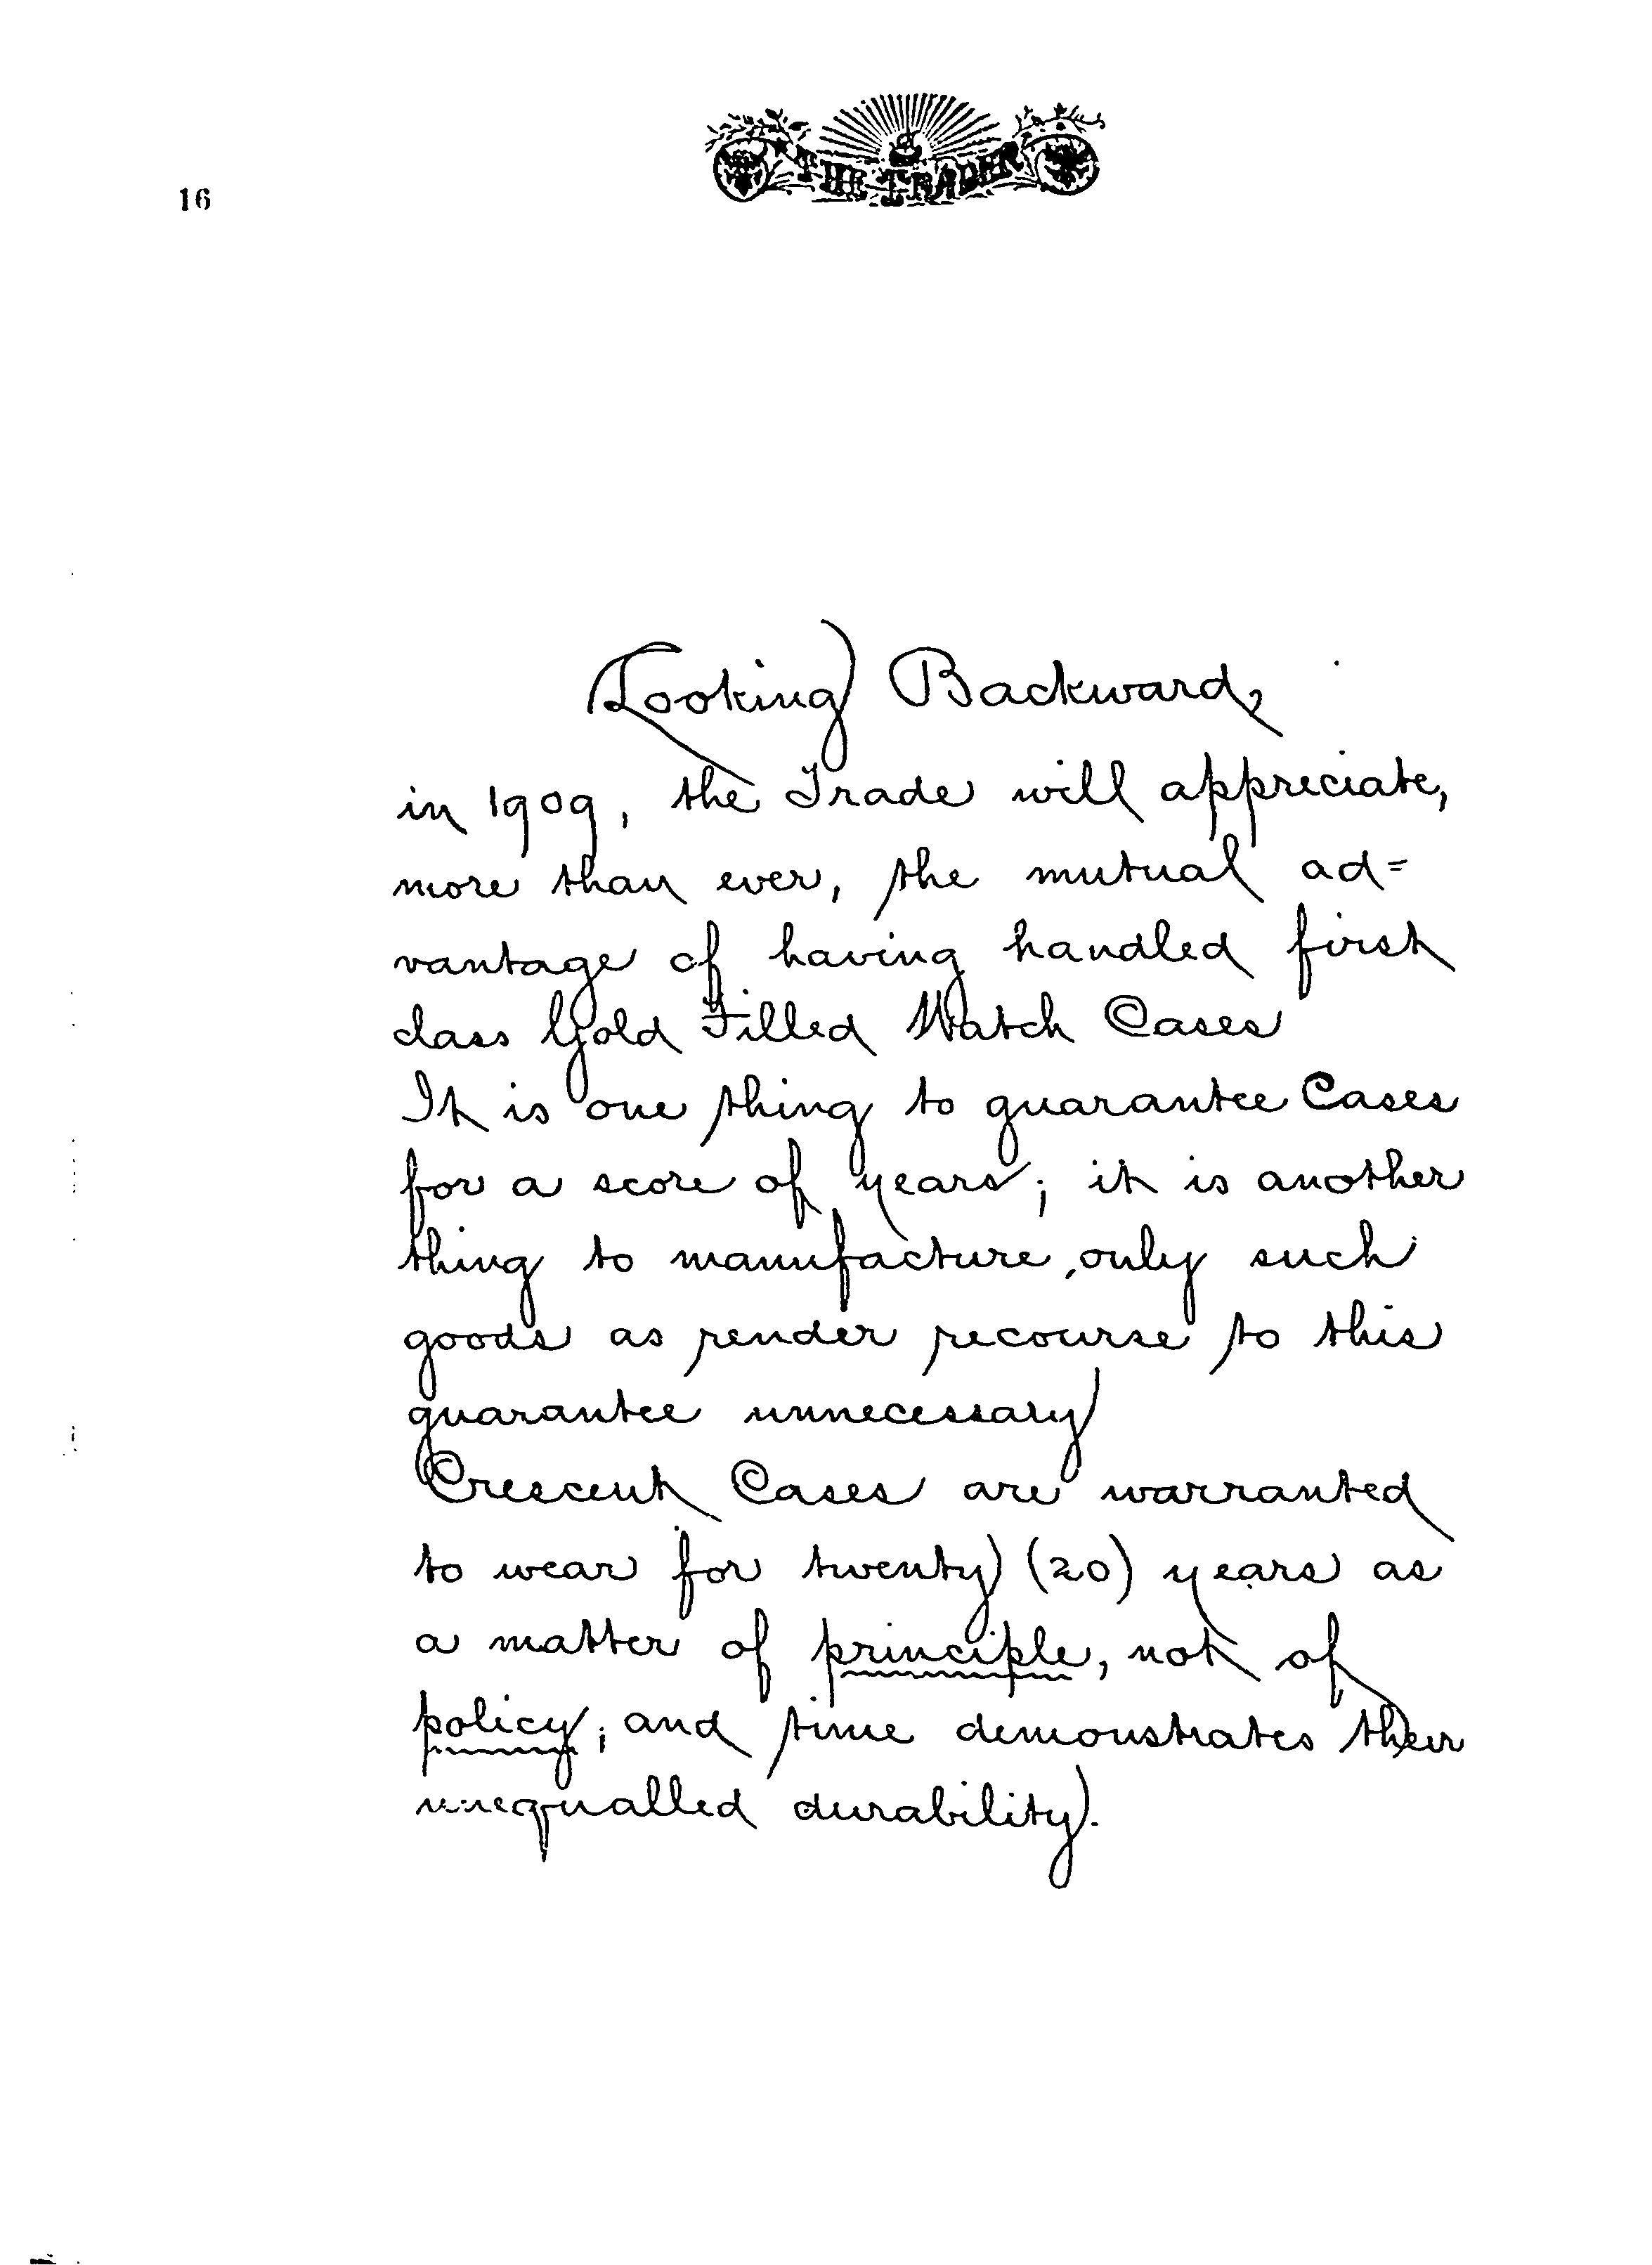 16
THE TRADER
Looking Backward,
in 1909, the Trade will appreciate,
more than ever, the mutual ad=
vantage of having handled first
class Gold Filled Watch Cases
It is one thing to guarantee Cases
for a score of years; it is another
thing to manufacture, only such
goods as render recourse to this
guarantee unnecessary
Crescent Cases are warranted
to wear for twenty (20) years as
a matter of principle, not of
policy; and time demonstrates their
unequalled durability.